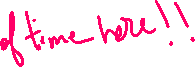 of time here!!